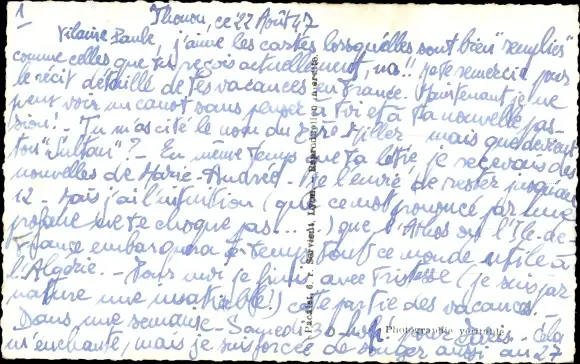 1
Thonon, ce 22 Août 47
Vilaine Paule, j'aime les cartes lorsqu'elles sont bien "remplies"
comme celles que tu reçois actuellement, na!! Je te remercie pour
le récit détaillé de tes vacances en France. Maintenant je ne
peux voir un canot sans penser à toi et à ta nouvelle pas-
sion! - Tu m'as cité le nom du Miller mais que devient
ton "Sultan"? En même temps que ta lettre, je recevais des
nouvelles de Marie-Andrée. Je l'envie de rester jusqu'au
12. Mais j'ai l'intuition (que ce mot prononcé par une
profane ne te choque pas.....) que l'Athos ou l'Ile-de-
France embarquera
l'Algérie. - Pour moi je finis avec tristesse (je suis par
nature une insatiable!) cette partie des vacances.
Dans une semaine - Samedi pour Paris. Cela
m'enchante, mais je suis forcée de songer aussi au 27
Pacalet, 6, r. Servient, Lyon. - Reproduction interdite
Photographie véritable